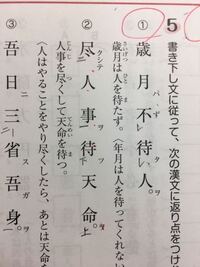 5 書き下し文に従って、次の漢文に返り点をつけ
① 歳月不待人。
歳月は人を待たず。（年月は人を待ってくれない
② 尽人事待天命。
人事を尽くして天命を待つ。
（人はやることをやり尽くしたら、あとは天命
③ 吾日三省吾身。